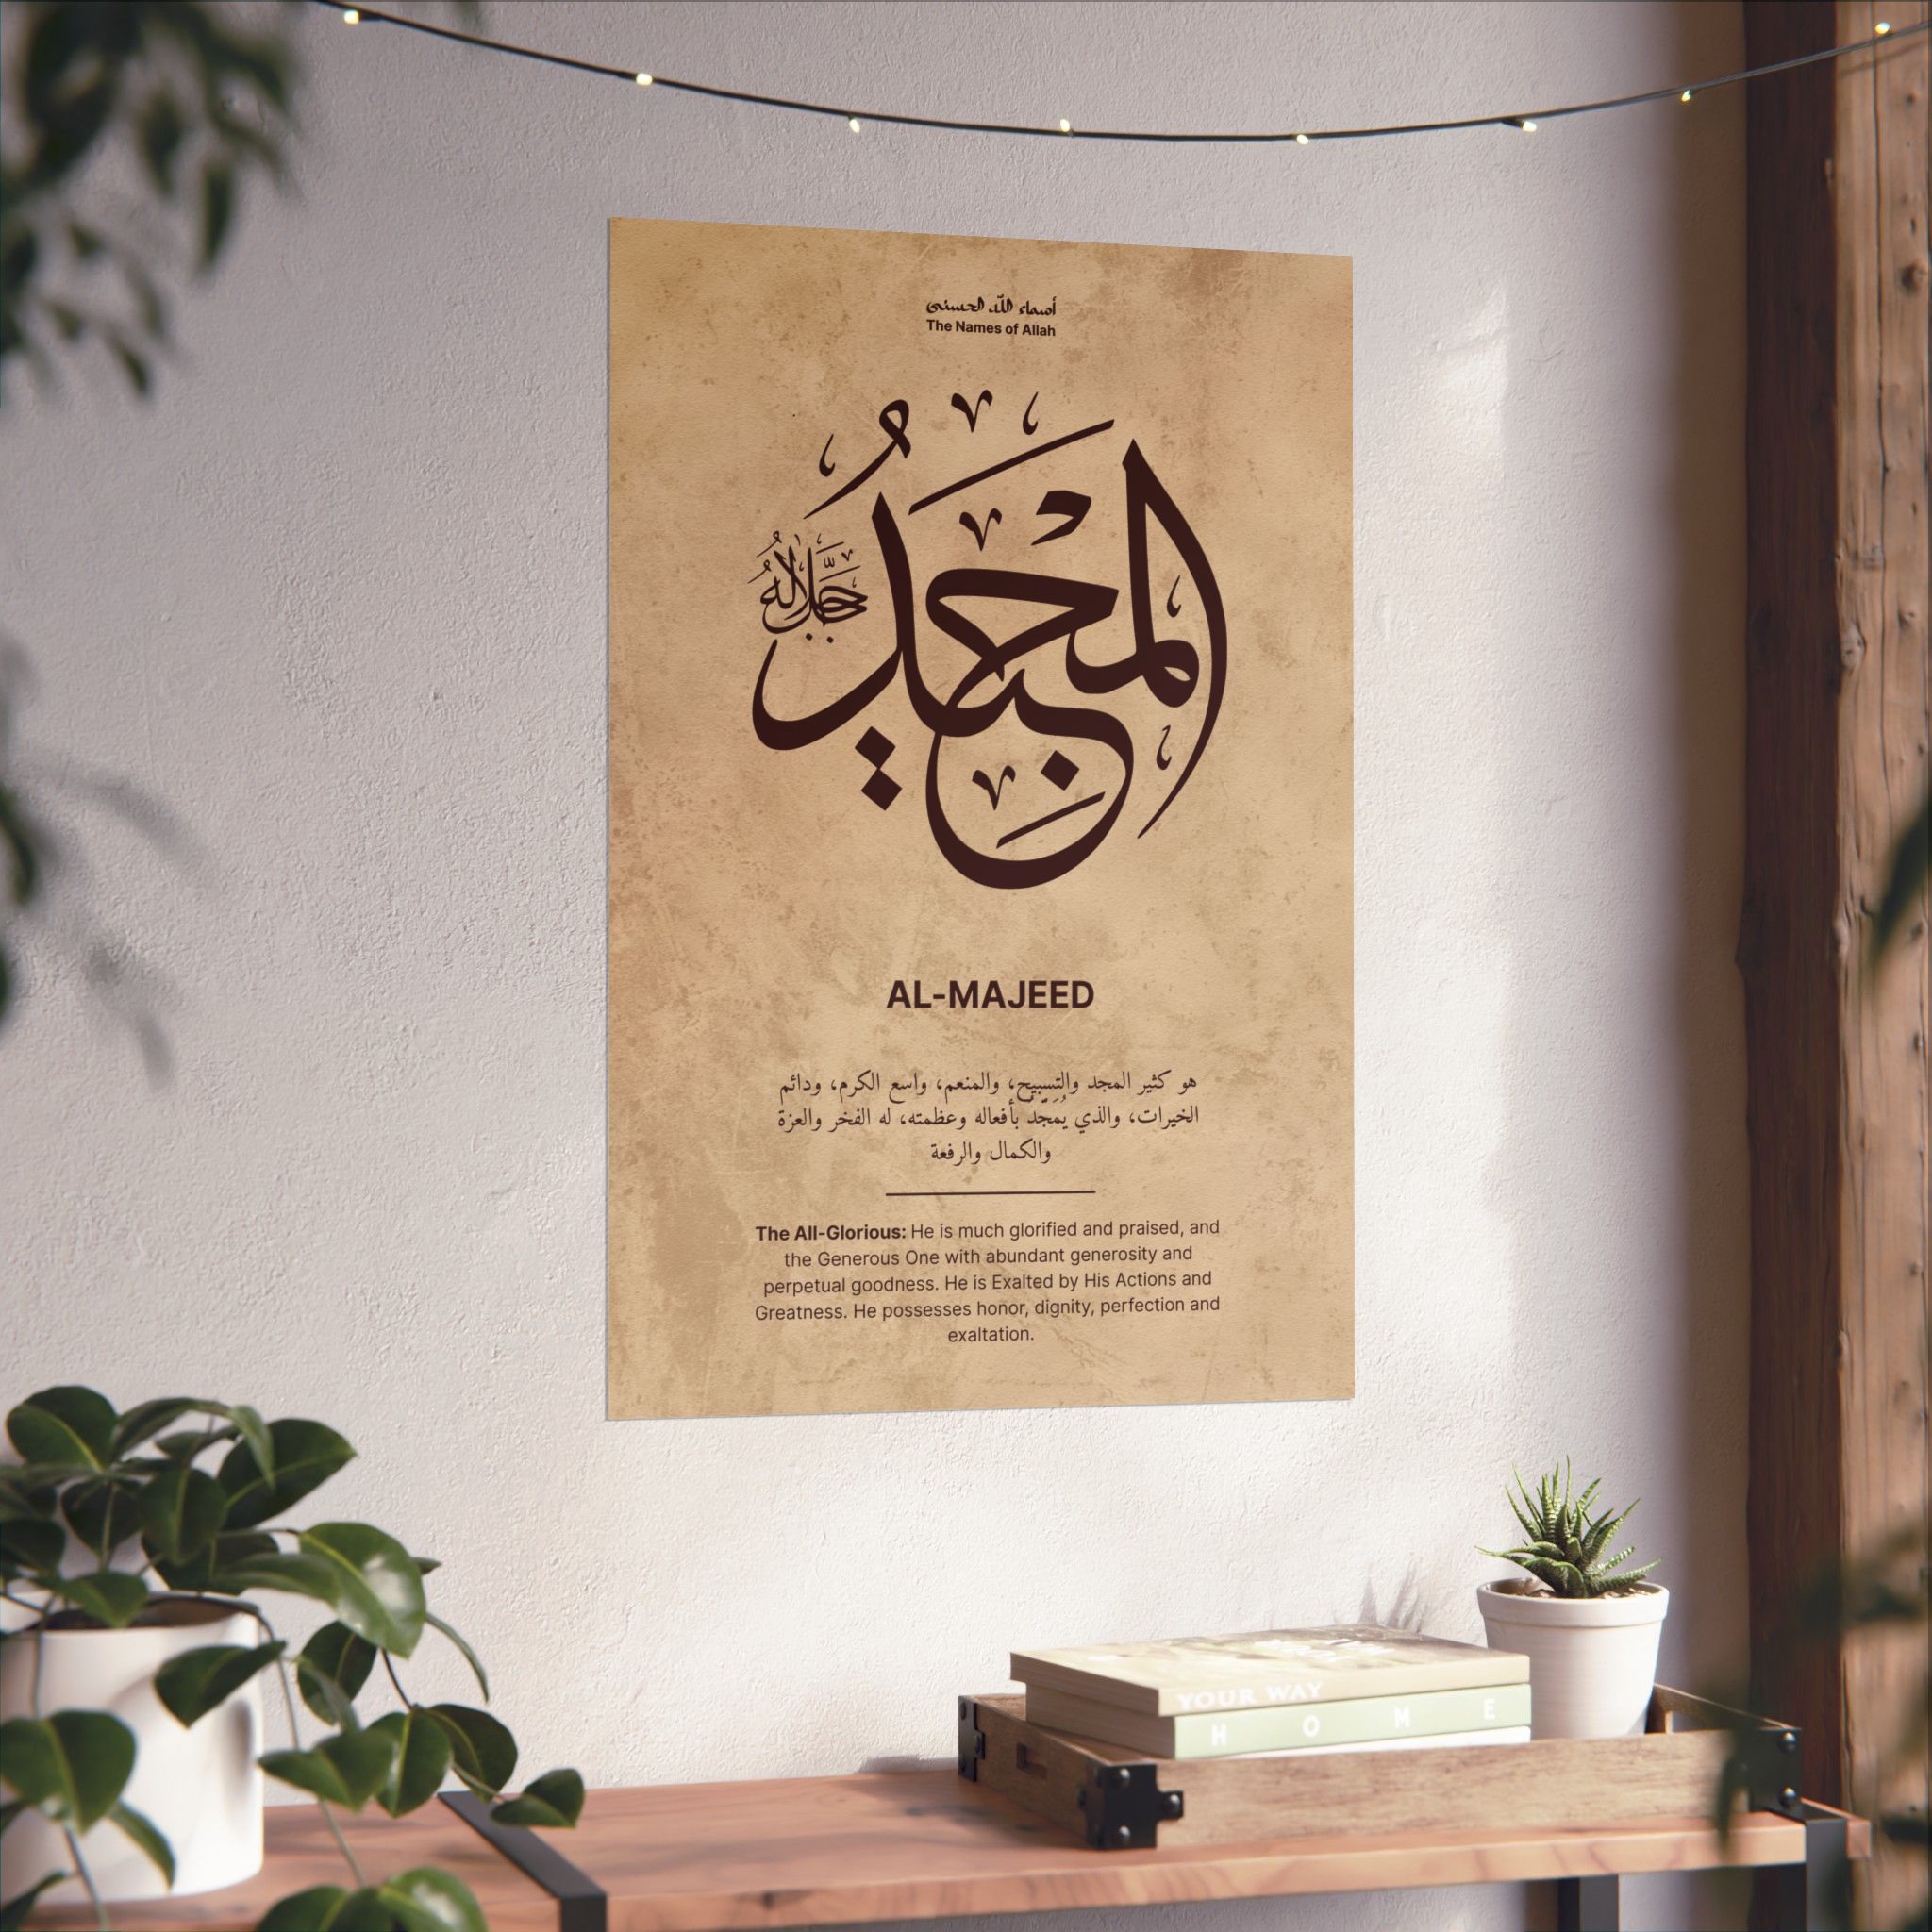 أسماء الله الحسنى
The Names of Allah
المجِيدُ
جَلَّ جَلَالُهُ
AL-MAJEED
هو كثير المجد والتسبيح، والمنعم، واسع الكرم، ودائم
الخيرات، والذي يُمَجّدُ بأفعاله وعظمته، له الفخر والعزة
والكمال والرفعة
The All-Glorious: He is much glorified and praised, and
the Generous One with abundant generosity and
perpetual goodness. He is Exalted by His Actions and
Greatness. He possesses honor, dignity, perfection and
exaltation.
YOUR WAY
HOME